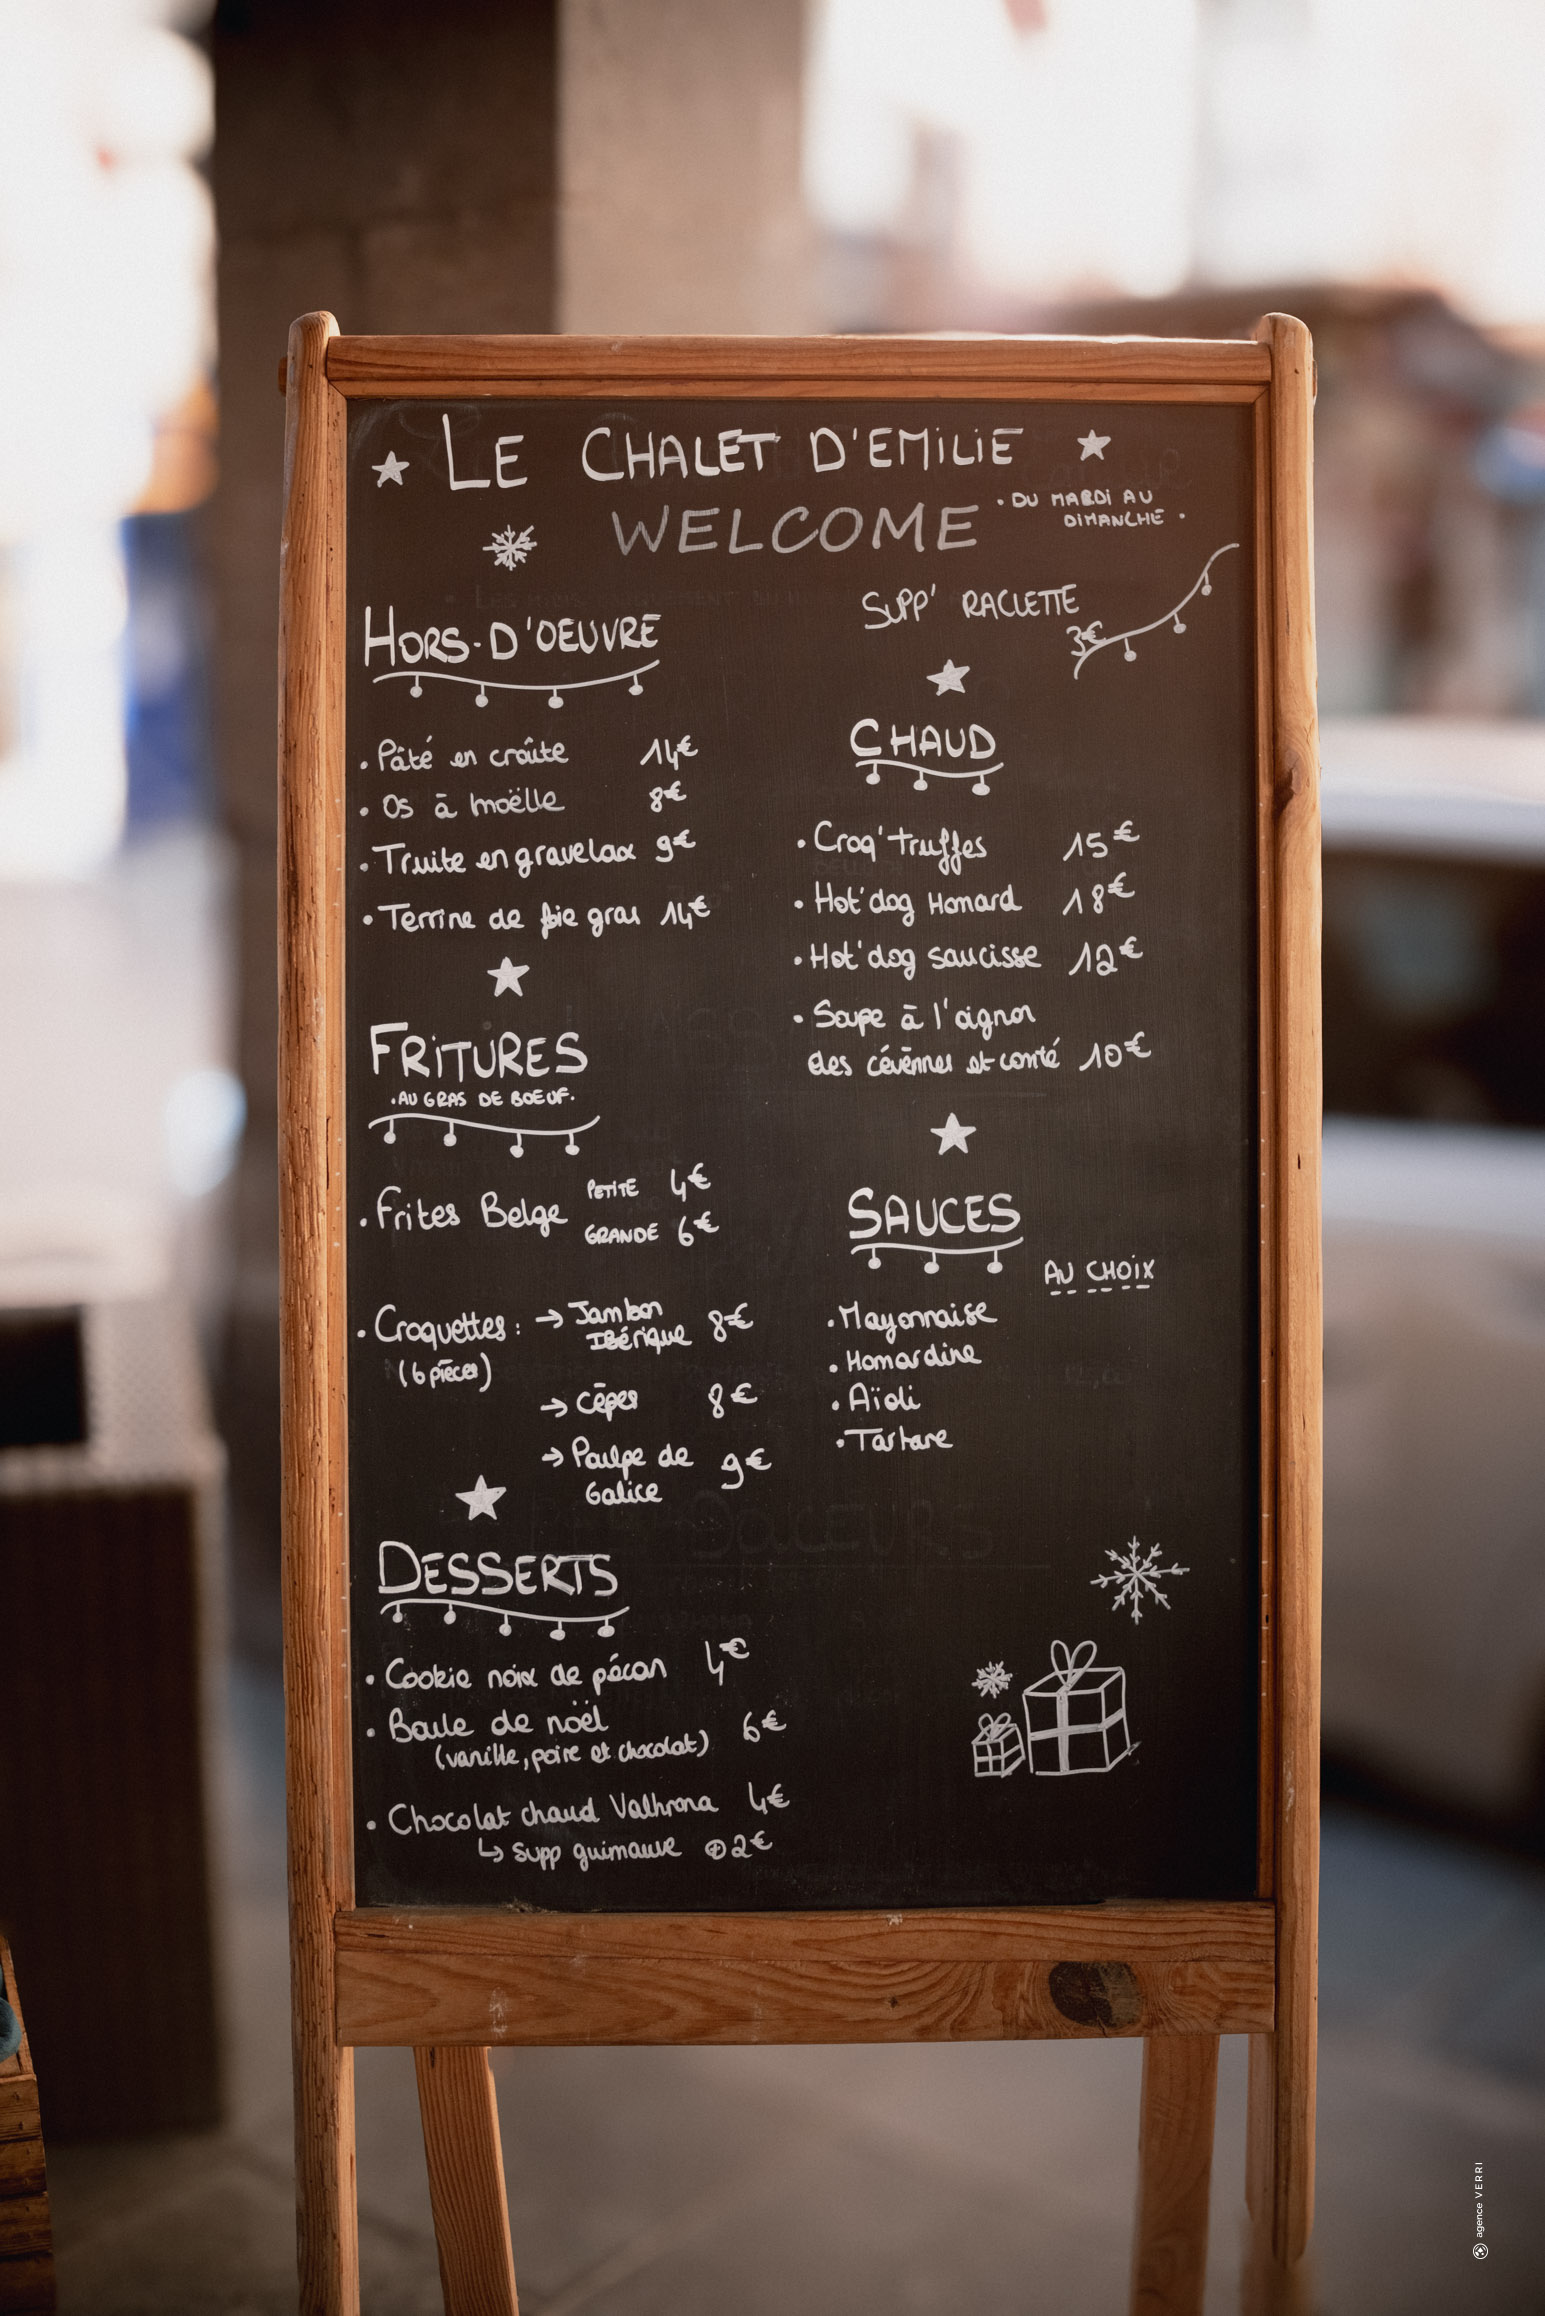 LE CHALET D'EMILIE
WELCOME
. DU MARDI AU
DIMANCHE .
HORS-D'OEUVRE
. Pâté en croûte 14€
. Os à moëlle 8€
. Truite en gravelax 9€
. Terrine de foie gras 14€
FRITURES
.AU GRAS DE BOEUF.
. Frites Belge PETITE 4€
GRANDE 6€
. Croquettes : → Jambon
(6 pièces) Ibérique 8€
→ Cèpes 8€
→ Poulpe de
Galice 9€
DESSERTS
. Cookie noix de pécan 4€
. Boule de noël 6€
(vanille, poire et chocolat)
. Chocolat chaud Valhrona 4€
↳ Supp guimauve ⊕2€
SUPP' RACLETTE
3€
CHAUD
. Croq'truffes 15€
. Hot'dog Homard 18€
. Hot'dog saucisse 12€
. Soupe à l'oignon
des cévènnes et comté 10€
SAUCES
AU CHOIX
. Mayonnaise
. Homardine
. Aïoli
. Tartare
agence VERRI